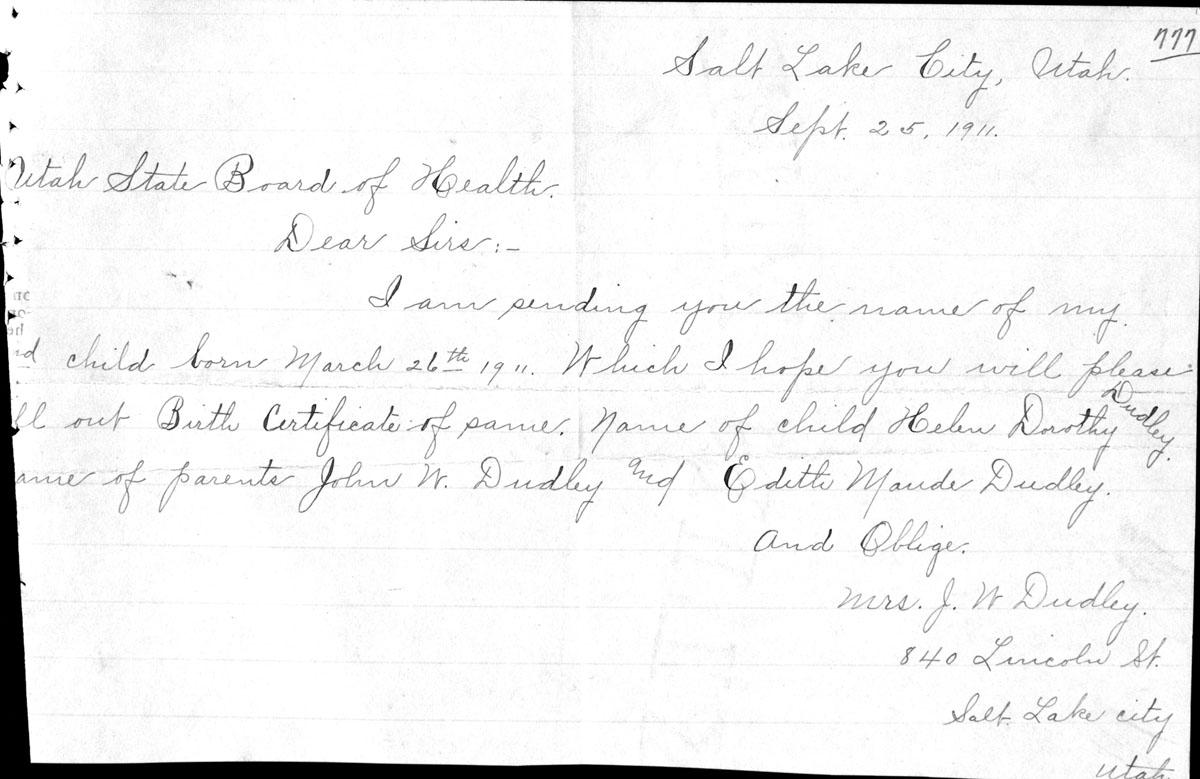 777
Salt Lake City, Utah.
Sept. 25, 1911.
Utah State Board of Health.
Dear Sirs:-
I am sending you the name of my
nd child born March 26th 1911. Which I hope you will please
ll out Birth Certificate of same. Name of child Helen Dorothy Dudley.
ame of parents John W. Dudley and Edith Maude Dudley.
And Oblige.
Mrs. J. W Dudley.
840 Lincoln St.
Salt Lake city
Utah.